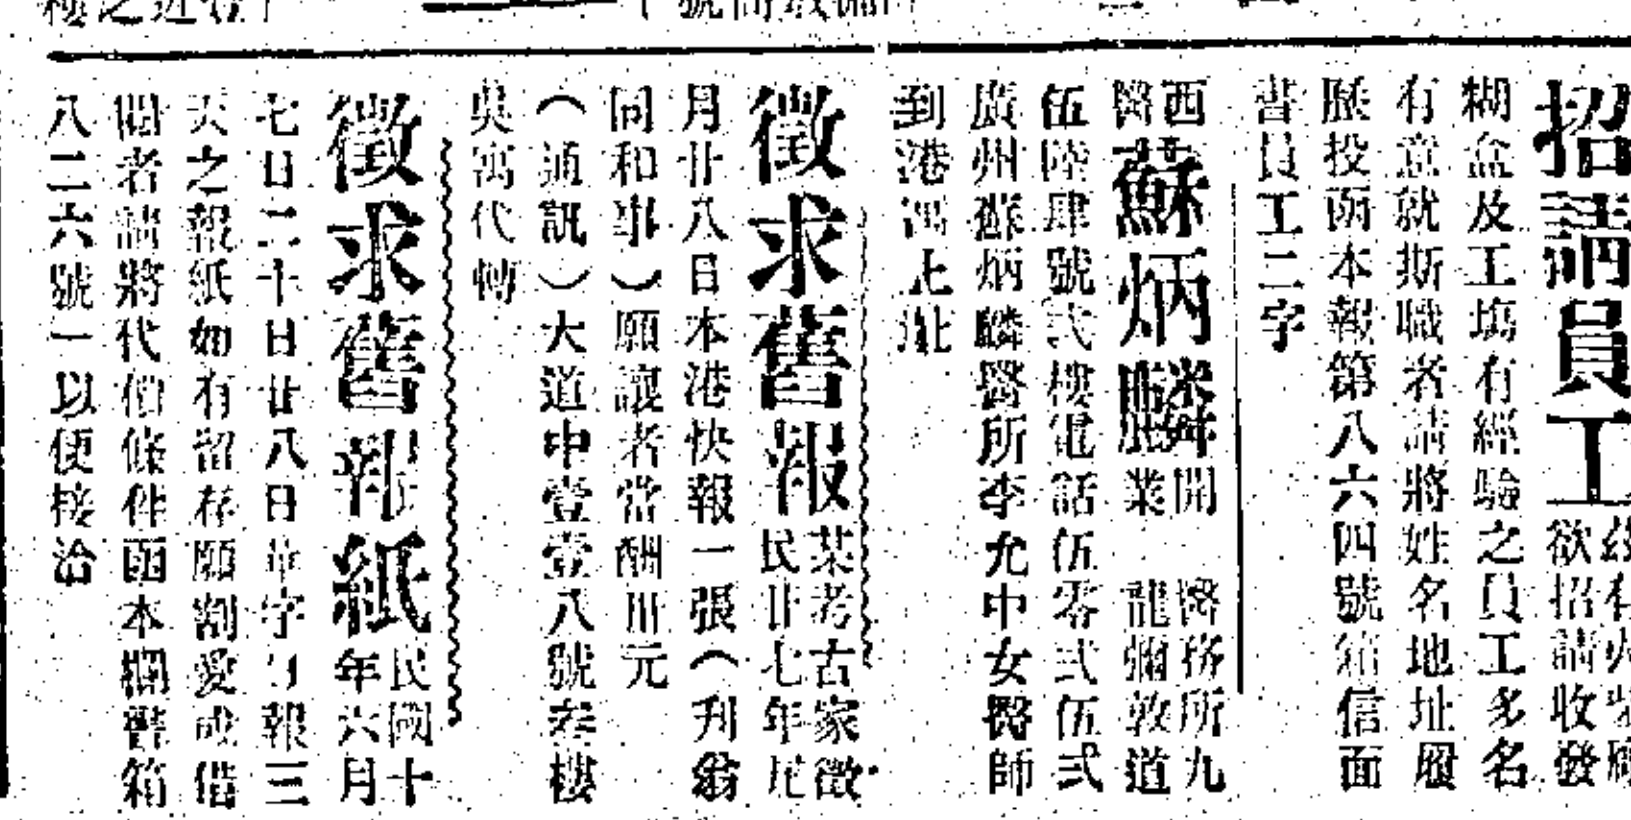 招請員工
茲有火柴廠
欲招請收發
糊盒及工塲有經驗之員工多名
有意就斯職者請將姓名地址履
歷投函本報第八六四號箱信面
書員工二字
西醫蘇炳麟開業
醫務所九龍彌敦道
伍陸肆號弍樓電話伍零弍伍弍
廣州蘇炳麟醫所李允中女醫師
到港寓上址
徵求舊報
某考古家徵
民廿七年尾
月廿八日本港快報一張（刋翁
同和事）願讓者當酬卅元
（通訊）大道中壹壹八號叁樓
吳寓代轉
徵求舊報紙
民國十
年六月
七日二十日廿八日華字日報三
天之報紙如有留存願割愛或借
閱者請將代伯條件函本欄舊箱
八二六號一以便接洽